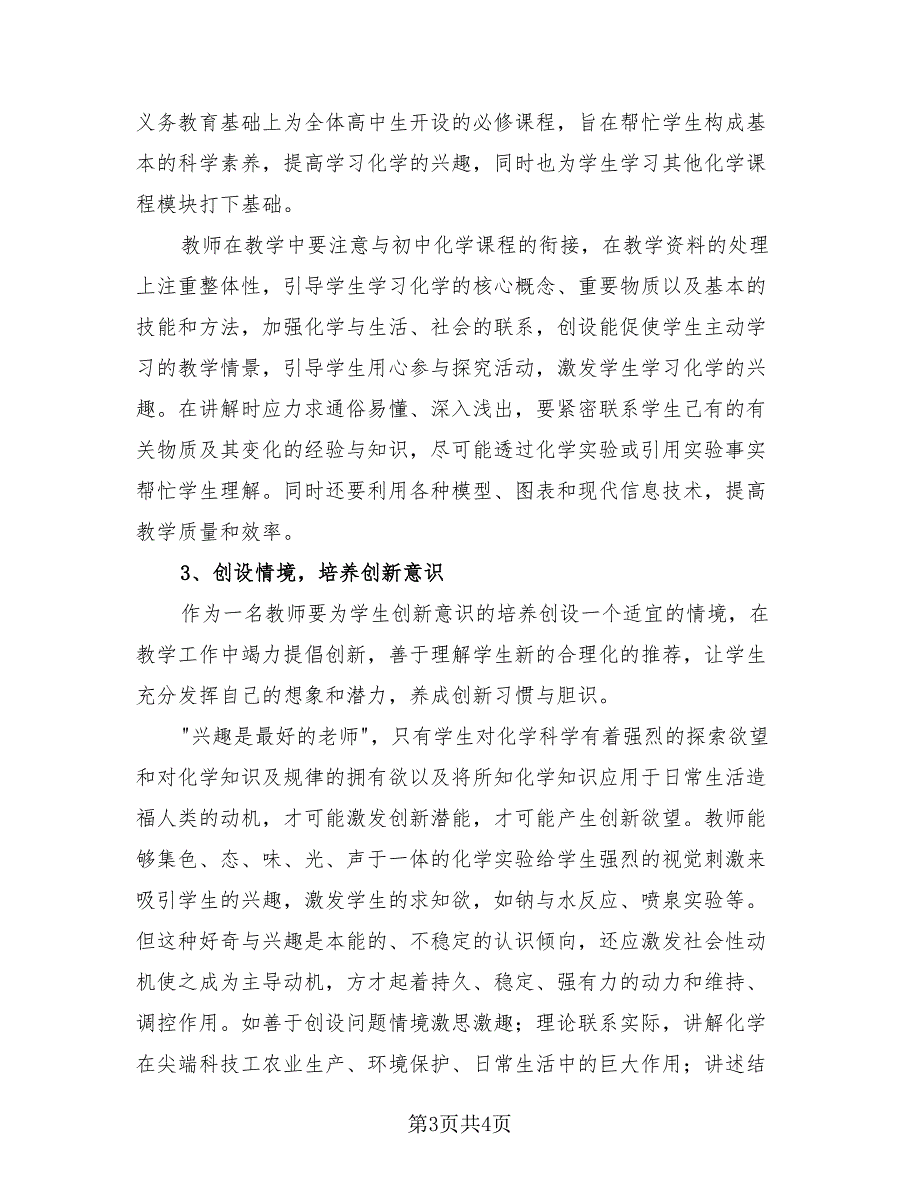 义务教育基础上为全体高中生开设的必修课程，旨在帮忙学生构成基
本的科学素养，提高学习化学的兴趣，同时也为学生学习其他化学课
程模块打下基础。
教师在教学中要注意与初中化学课程的衔接，在教学资料的处理
上注重整体性，引导学生学习化学的核心概念、重要物质以及基本的
技能和方法，加强化学与生活、社会的联系，创设能促使学生主动学
习的教学情景，引导学生用心参与探究活动，激发学生学习化学的兴
趣。在讲解时应力求通俗易懂、深入浅出，要紧密联系学生己有的有
关物质及其变化的经验与知识，尽可能透过化学实验或引用实验事实
帮忙学生理解。同时还要利用各种模型、图表和现代信息技术，提高
教学质量和效率。
3、创设情境，培养创新意识
作为一名教师要为学生创新意识的培养创设一个适宜的情境，在
教学工作中竭力提倡创新，善于理解学生新的合理化的推荐，让学生
充分发挥自己的想象和潜力，养成创新习惯与胆识。
"兴趣是最好的老师"，只有学生对化学科学有着强烈的探索欲望
和对化学知识及规律的拥有欲以及将所知化学知识应用于日常生活造
福人类的动机，才可能激发创新潜能，才可能产生创新欲望。教师能
够集色、态、味、光、声于一体的化学实验给学生强烈的视觉刺激来
吸引学生的兴趣，激发学生的求知欲，如钠与水反应、喷泉实验等。
但这种好奇与兴趣是本能的、不稳定的认识倾向，还应激发社会性动
机使之成为主导动机，方才起着持久、稳定、强有力的动力和维持、
调控作用。如善于创设问题情境激思激趣；理论联系实际，讲解化学
在尖端科技工农业生产、环境保护、日常生活中的巨大作用；讲述结
第3页共4页